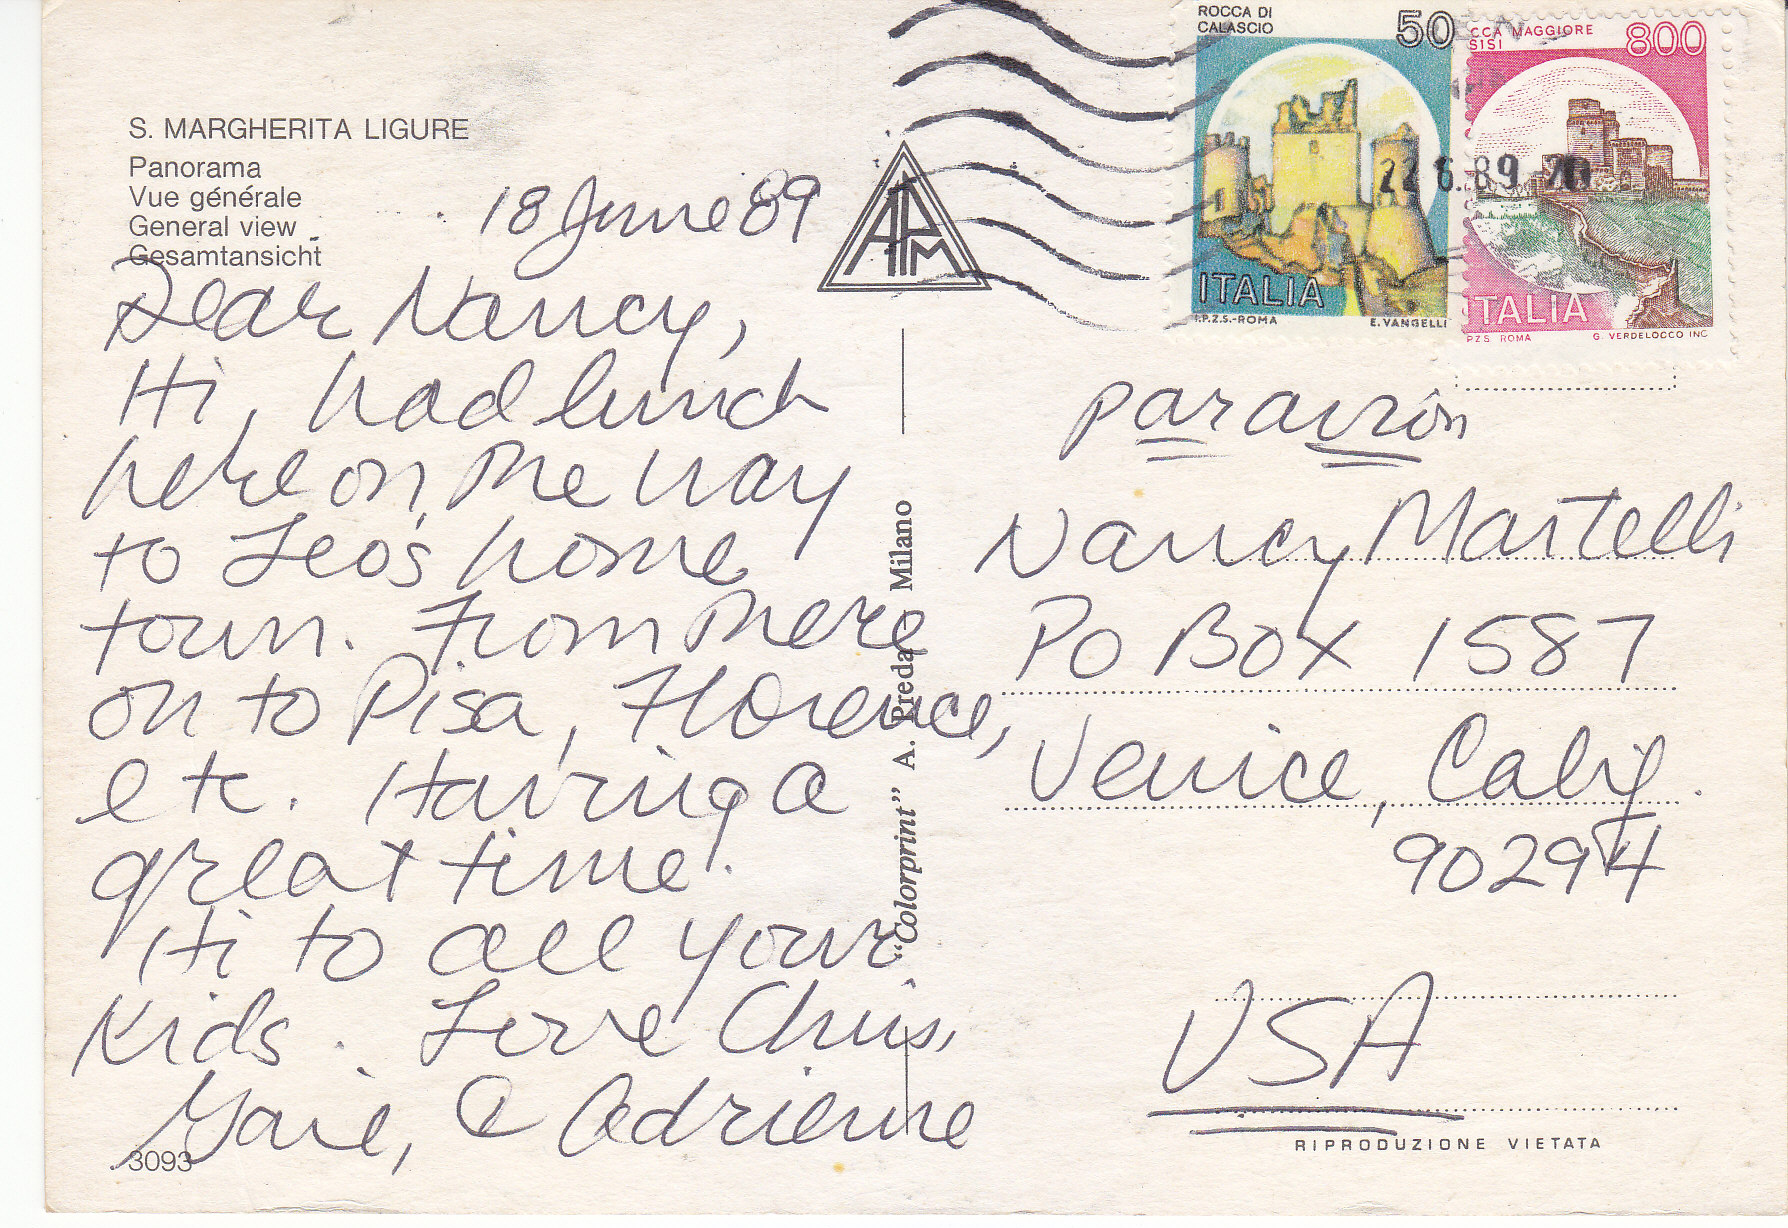 S. MARGHERITA LIGURE
Panorama
Vue générale
General view
Gesamtansicht
18 June 89
Dear Nancy,
Hi, had lunch
here on the way
to Leo's home
town. From there
on to Pisa, Florence,
etc. Having a
great time.
Hi to all your
Kids. Love Chris,
& Adrienne
3093
"Colorprint" A. Preda - Milano
APM
ROCCA DI
CALASCIO
50
ITALIA
I.P.Z.S.-ROMA E. VANGELLI
CCA MAGGIORE
SISI
800
ITALIA
PZS ROMA G. VERDELOCCO INC
22 6.89 20
par avion
Nancy Martelli
PO Box 1587
Venice, Calif.
90294
USA
RIPRODUZIONE VIETATA